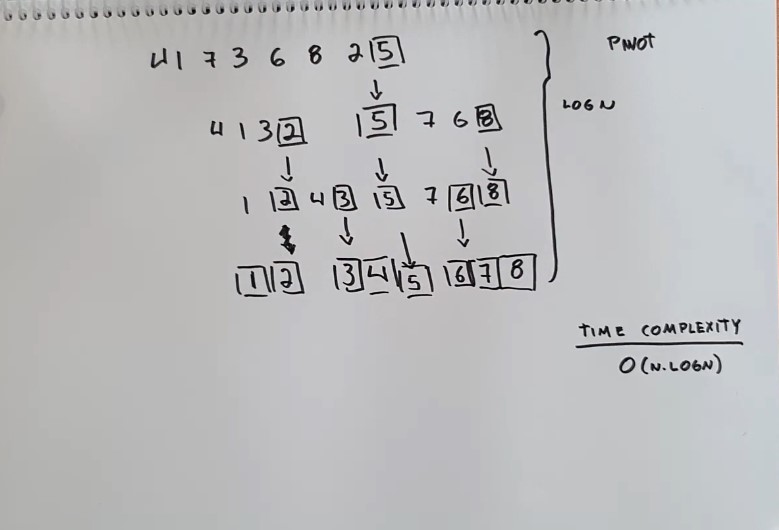 4 1 7 3 6 8 2 5
PIVOT
LOGN
4 1 3 2 5 7 6 8
1 2 4 3 5 7 6 8
1 2 3 4 5 6 7 8
TIME COMPLEXITY
O(N.LOGN)